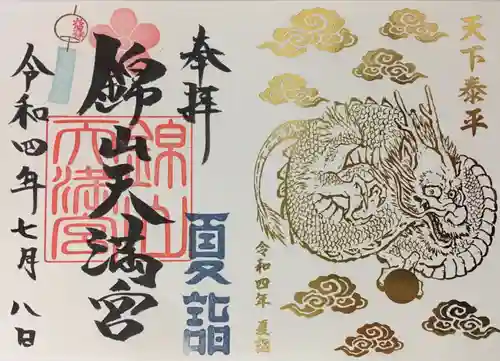 天下泰平
令和四年 夏詣
奉拝
夏詣
錦山天満宮
錦山天満宮
令和四年七月八日